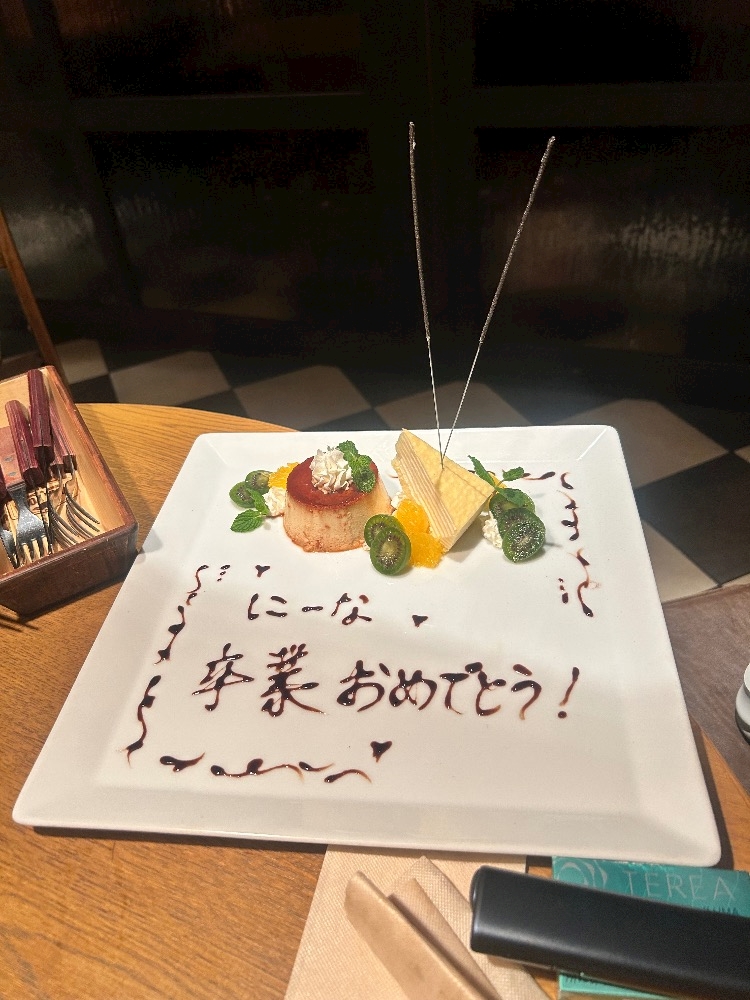 にーな
卒業おめでとう!
TEREA